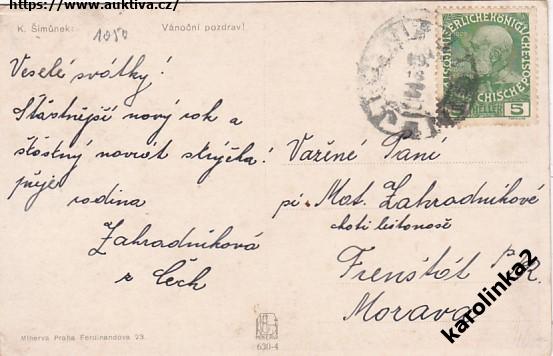 https://www.auktiva.cz/
K. Šimůnek:
1050
Vánoční pozdrav!
Veselé svátky!
Šťastnější nový rok a
šťastný návrat strýčka!
přeje rodina
Zahradníková
z Čech
Vážené Paní
pí Mat. Zahradníkové
choti listonoše
Frenštát p. R.
Morava
KAISERLICHE KÖNIGLICHE ÖSTERREICHISCHE POST
HELLER 5
Minerva Praha Ferdinandova 23.
MINERVA
630-4
karolinka2